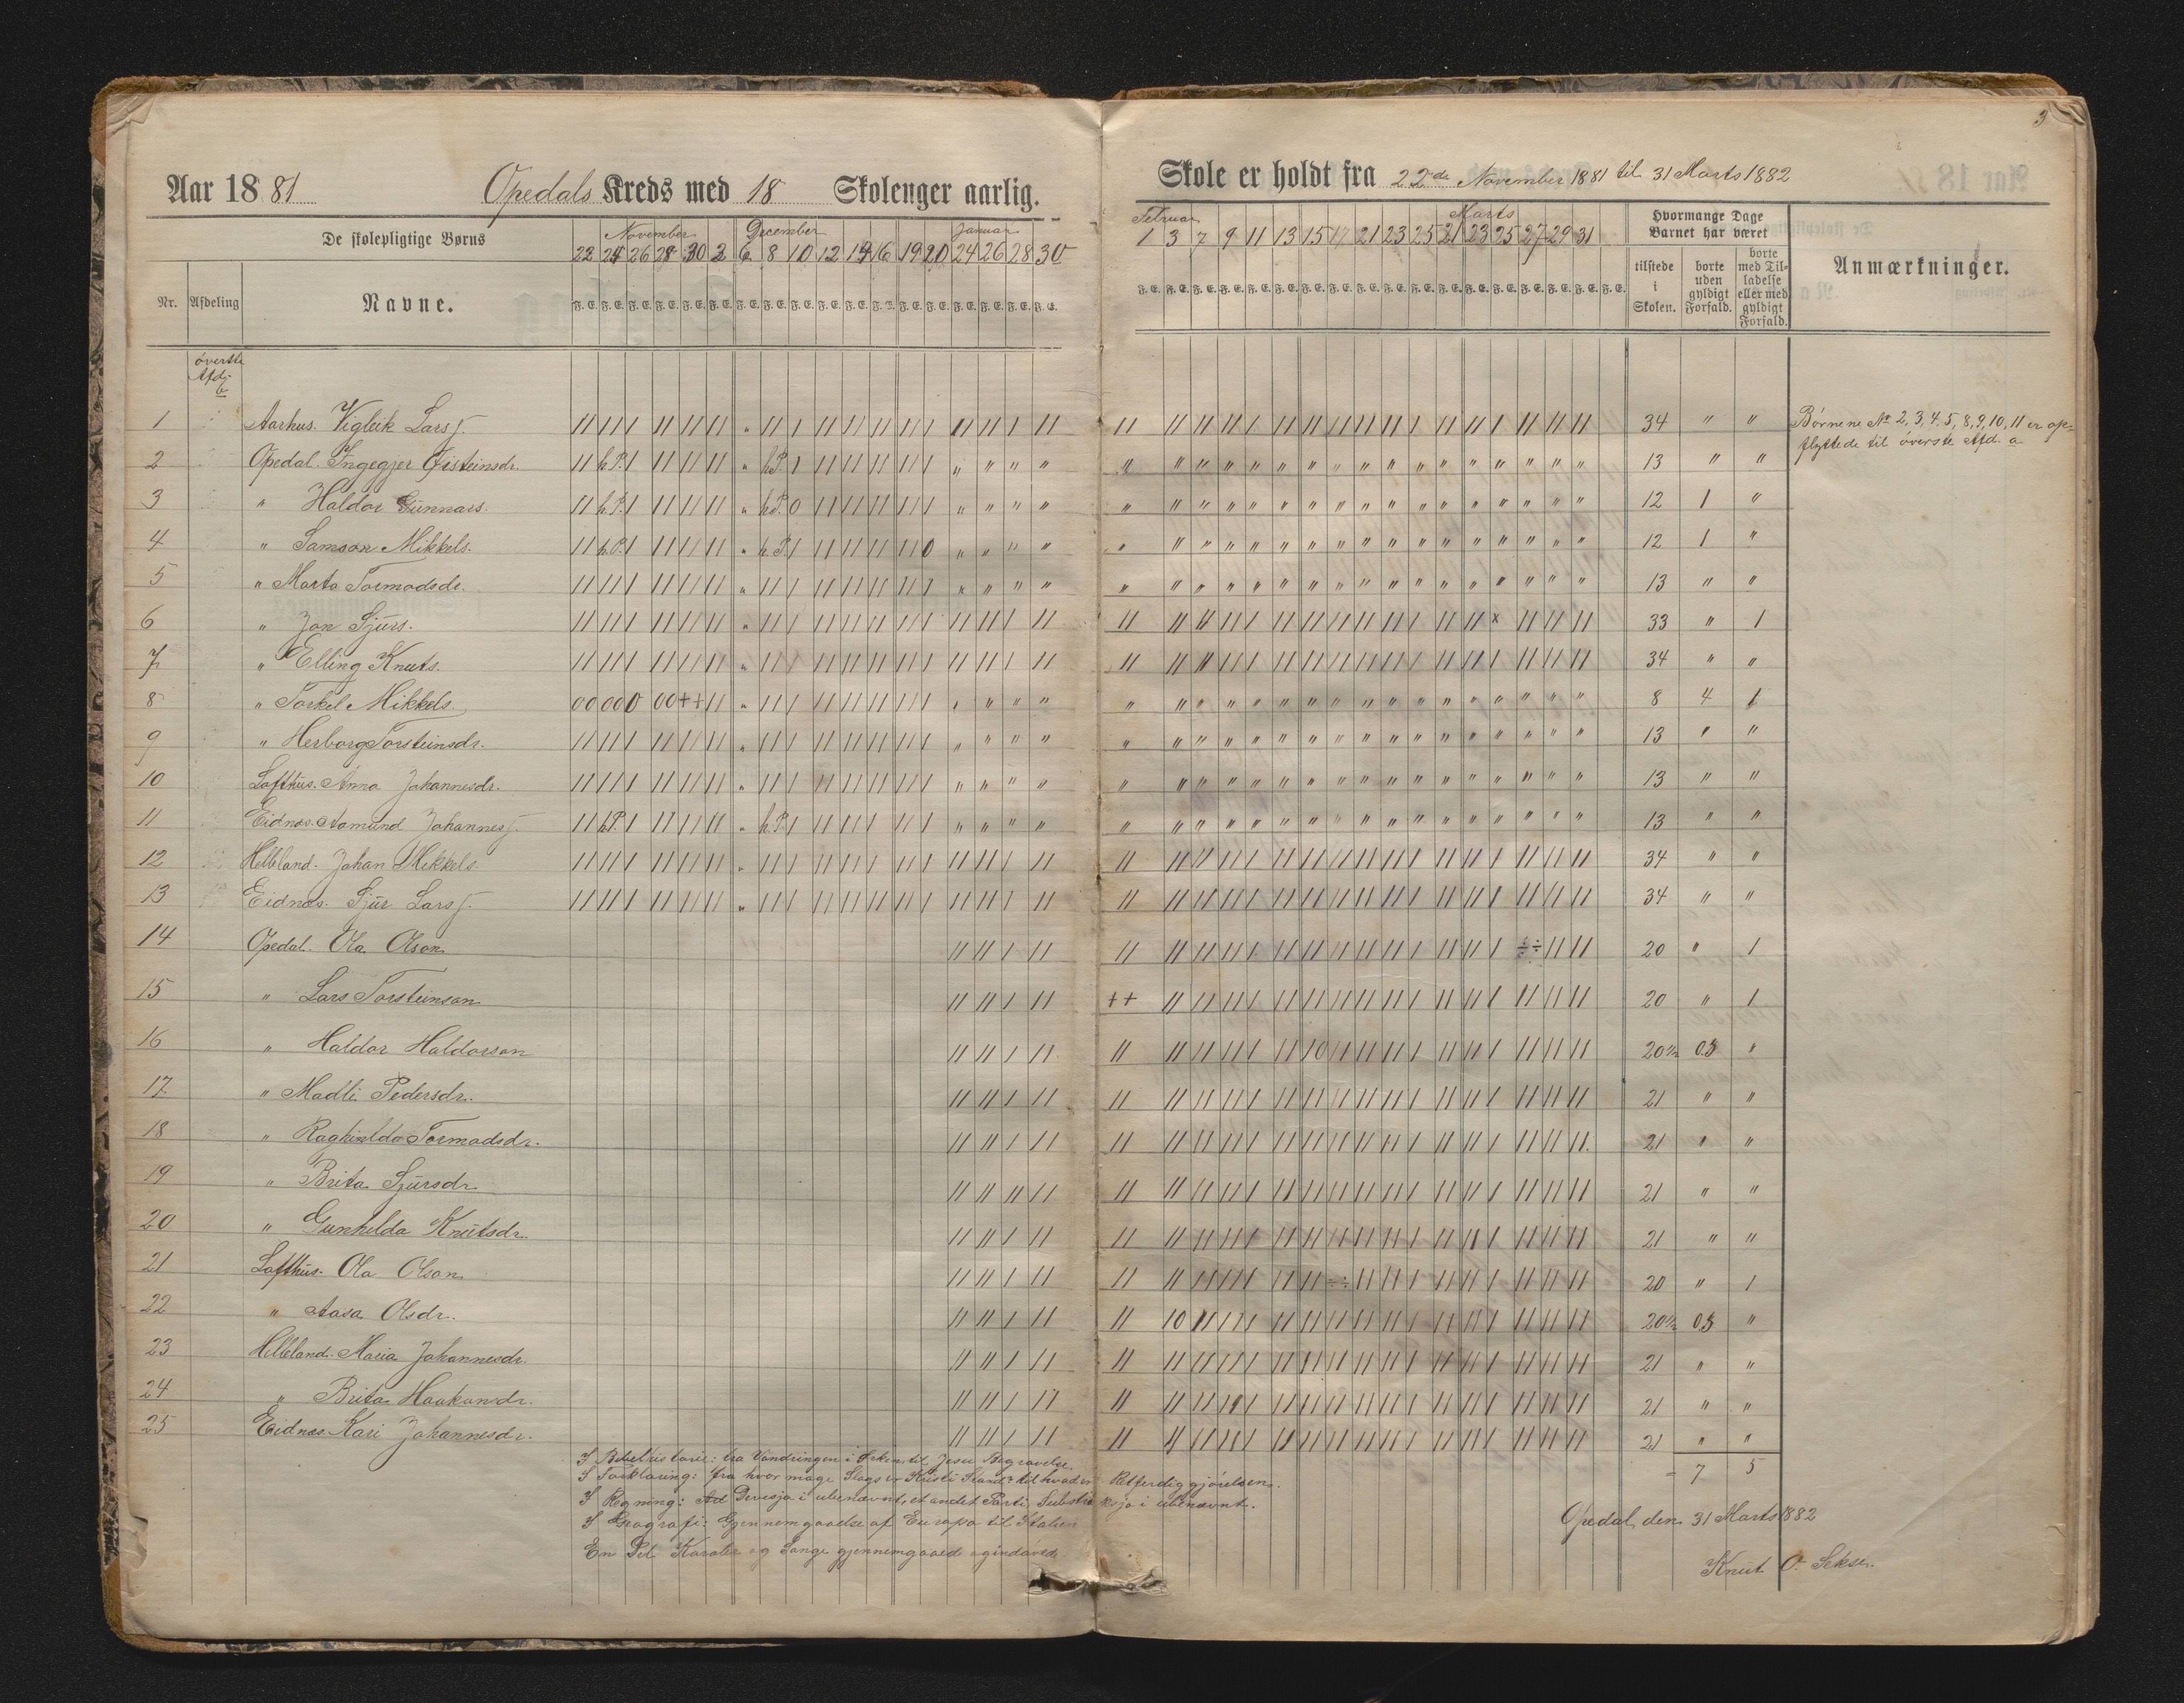 3
Aar 1881 Opedals Kreds med 18 Skolenger aarlig.
Skole er holdt fra 22de November 1881 til 31 Marts 1882
De skolepligtige Børns
November December Januar
22 24 26 28 30 2 6 8 10 12 14 16 19 20 24 26 28 30
Februar Marts
1 3 7 9 11 13 15 17 21 23 25 21 23 25 27 29 31
Hvormange Dage Barnet har været
Nr. Afdeling Navne.
tilstede i Skolen.
borte uden gyldigt Forfald.
borte med Tilladelse eller med gyldigt Forfald.
Anmærkninger.
øverste Afd. b
1 Aarhus. Vigleik Larss. 34 " "
Børnene No 2, 3, 4, 5, 8, 9, 10, 11 er opflyttede til øverste Afd. a
2 Opedal. Ingegjer Øisteinsdr. 13 " "
3 " Haldor Gunnars. 12 1 "
4 " Samson Mikkels. 12 1 "
5 " Marta Tormodsdr. 13 " "
6 " Jon Sjurs. 33 " 1
7 " Elling Knuts. 34 " "
8 " Torkel Mikkels. 8 4 1
9 " Herborg Torsteinsdr. 13 " "
10 Lofthus. Anna Johannesdr. 13 " "
11 Eidnes. Aamund Johanness. 13 " "
12 Helleland. Johan Mikkels. 34 " "
13 Eidnes. Sjur Larss. 34 " "
14 Opedal. Ola Olson 20 " 1
15 " Lars Torsteinson 20 " 1
16 " Haldor Haldorson 20½ 0.5 "
17 " Madli Pedersdr. 21 " "
18 " Raghnilda Tormodsdr. 21 " "
19 " Brita Sjursdr. 21 " "
20 " Gunhilda Knutsdr. 21 " "
21 Lofthus. Ola Olson 20 " 1
22 " Aasa Olsdr. 20½ 0.5 "
23 Helleland. Maria Johannesdr. 21 " "
24 " Brita Haakonsdr. 21 " "
25 Eidnes. Kari Johannesdr. 21 " "
= 7 5
I Bibelhistorie: fra Vandringen i Ørken til Jesu Begravelse.
I Forklaring: fra hvor mange Slags er Kristi Stand? til hvad er Retferdiggjørelsen.
I Regning: Devisja i ubenævnt, et andet Parti, Substraksja i ubenævnt.
I Geografi: Gjennemgaaelse af Europa til Italien
En Del Koraler og Sange gjennemgaaed og indøved.
Opedal, den 31 Marts 1882
Knut O. Sekse.